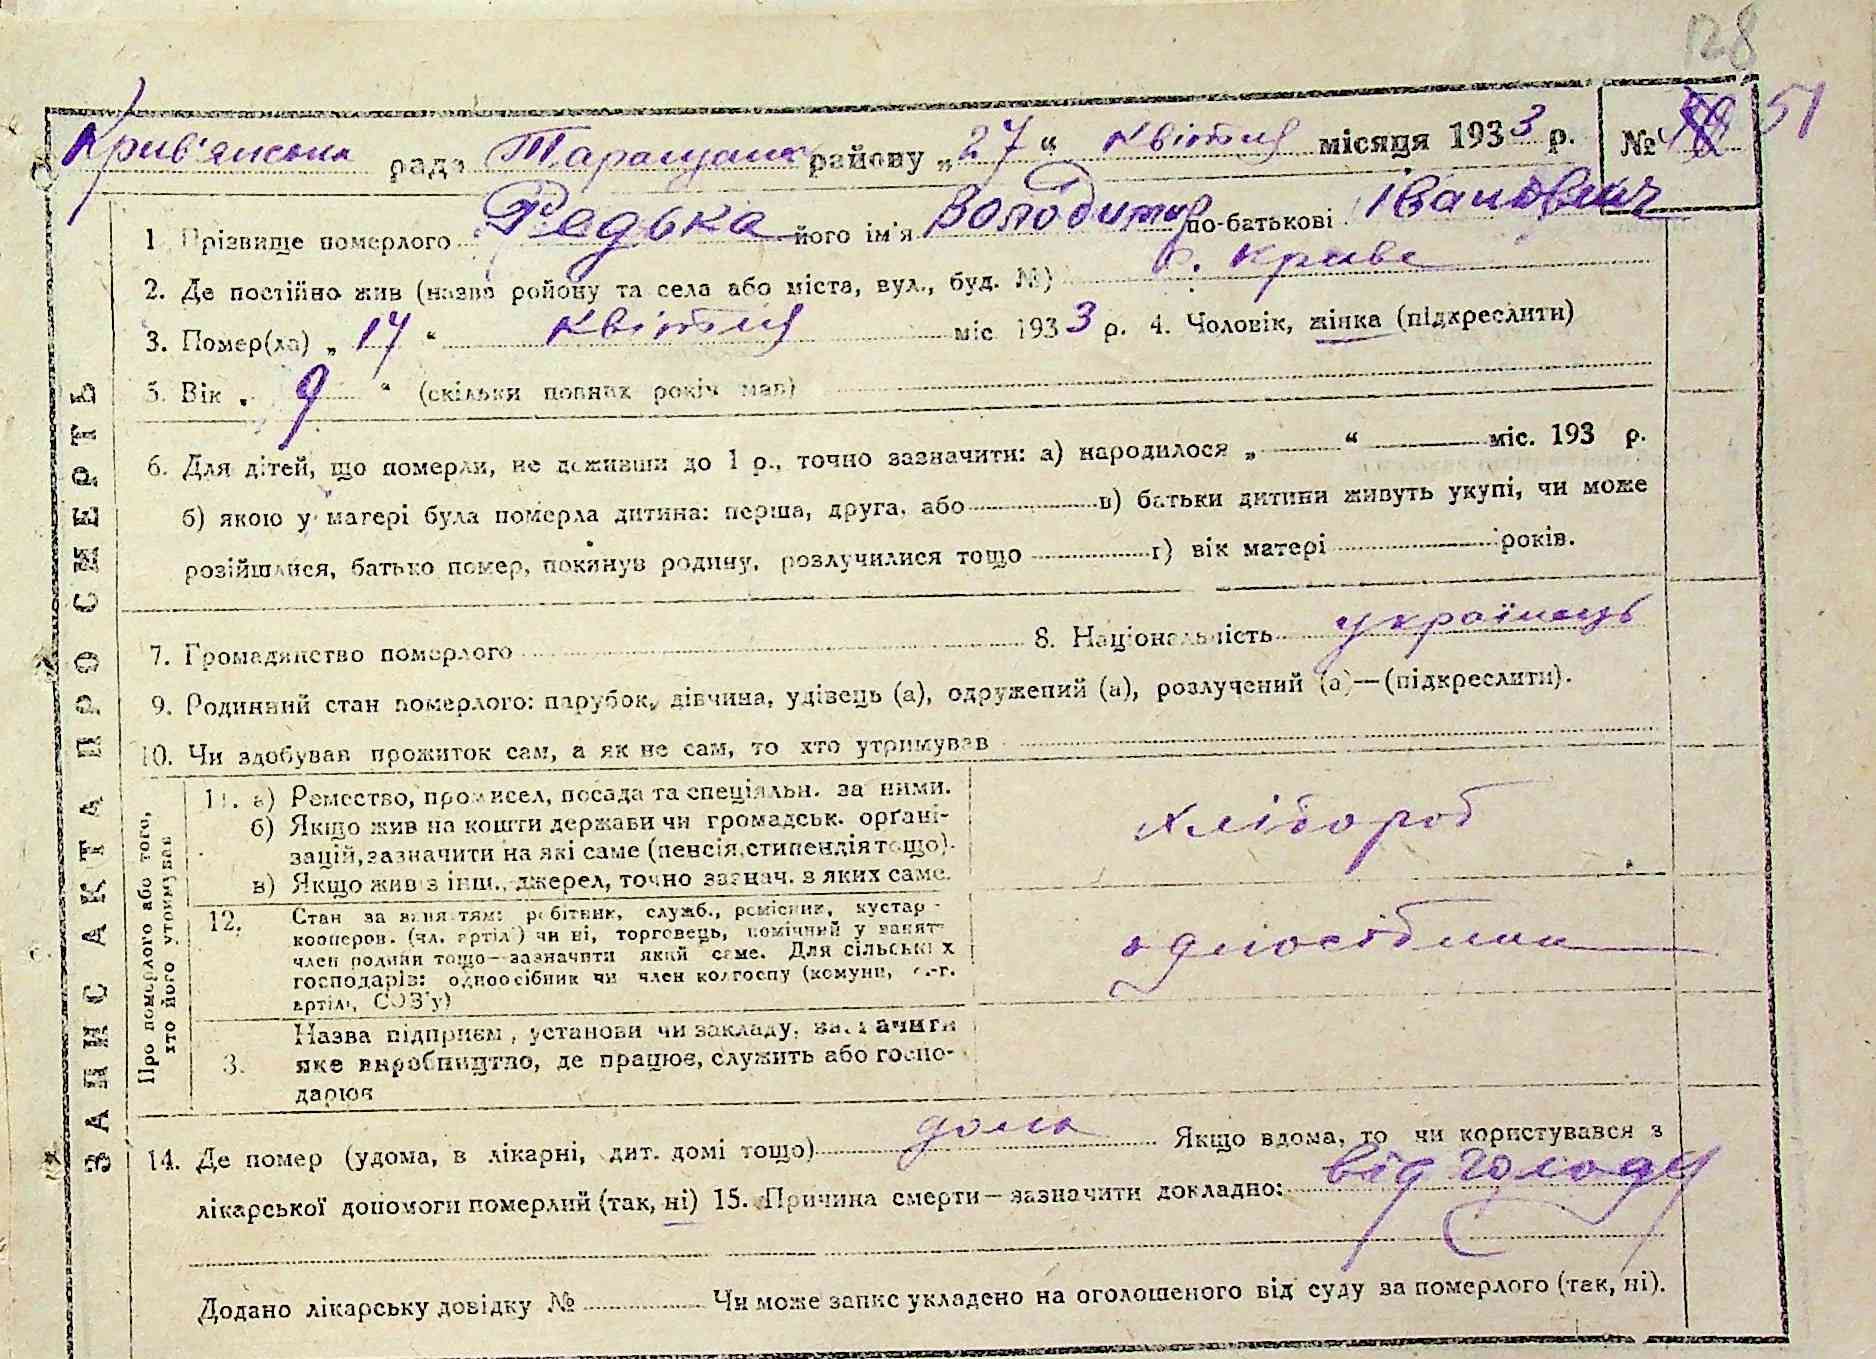 128
Крив'янська рада Таращанськ району „27“ квітня місяця 1933 р. № 51
1. Прізвище померлого Редька його ім'я Володимир по-батькові Іванович
2. Де постійно жив (назва ройону та села або міста, вул., буд. №) с. Криве
3. Помер(ла) „17“ квітня міс 1933 р. 4. Чоловік, жінка (підкреслити)
5. Вік „9“ (скільки повних років мав)
6. Для дітей, що померли, не доживши до 1 р., точно зазначити: а) народилося „ “ міс. 193 р.
б) якою у матері була померла дитина: перша, друга, або в) батьки дитини живуть укупі, чи може
розійшлися, батько помер, покинув родину, розлучилися тощо г) вік матері років.
7. Громадянство померлого 8. Національність українець
9. Родинний стан померлого: парубок, дівчина, удівець (а), одружений (а), розлучений (а)—(підкреслити).
10. Чи здобував прожиток сам, а як не сам, то хто утримував
ЗАПИС АКТА ПРО СМЕРТЬ
Про померлого або того,
хто його утримував
11. а) Ремество, промисел, посада та спеціяльн. за ними.
б) Якщо жив на кошти держави чи громадськ. органі-
зацій, зазначити на які саме (пенсія, стипендія тощо).
в) Якщо жив з інш. джерел, точно зазнач. з яких саме.
хлібороб
12. Стан за заняттям: робітник, служб., ремісник, кустар
кооперов. (чл. артіл.) чи ні, торговець, помічний у занят-
член родини тощо—зазначити який саме. Для сільських
господарів: одноосібник чи член колгоспу (комуни, с.-г.
артілі, СОЗ'у)
одноосібник
3. Назва підприєм., установи чи закладу, зазначити
яке виробництво, де працює, служить або госпо-
дарює
14. Де помер (удома, в лікарні, дит. домі тощо) дома Якщо вдома, то чи користувався з
лікарської допомоги померлий (так, ні) 15. Причина смерти—зазначити докладно: від голоду
Додано лікарську довідку № Чи може запис укладено на оголошеного від суду за померлого (так, ні).